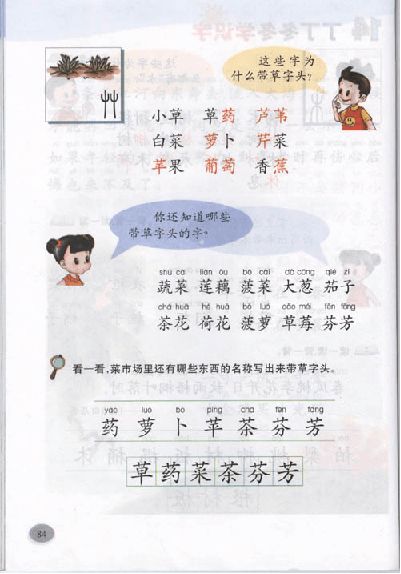 这些字为
什么带草字头？
小草 草药 芦苇
白菜 萝卜 芹菜
苹果 葡萄 香蕉
你还知道哪些
带草字头的字？
shū cài lián ǒu bō cài dà cōng qié zi
蔬菜 莲藕 菠菜 大葱 茄子
chá huā hé huā bō luó cǎo méi fēn fāng
茶花 荷花 菠萝 草莓 芬芳
看一看，菜市场里还有哪些东西的名称写出来带草字头。
yào luó bo píng chá fēn fāng
药 萝 卜 苹 茶 芬 芳
草药菜茶芬芳
84